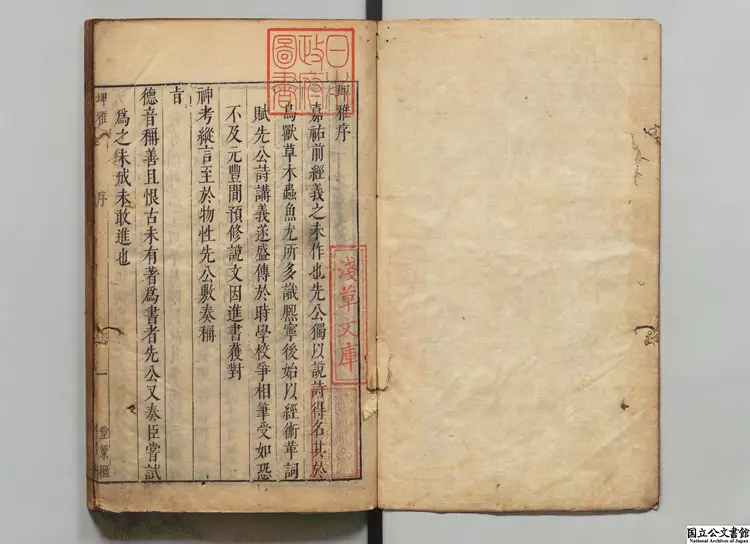 埤雅序
嘉祐前經義之未作也先公獨以說詩得名其於
鳥獸草木蟲魚尤所多識熈寧後始以經術革詞
賦先公詩講義遂盛傳於時學校爭相筆受如恐
不及元豐間預修說文因進書獲對
神考縱言至於物性先公敷奏稱
旨
德音稱善且恨古未有著爲書者先公又奏臣嘗試
爲之未成未敢進也
埤雅
序
一
堂策檻
日本政府圖書
淺草文庫
国立公文書館
National Archives of Japan